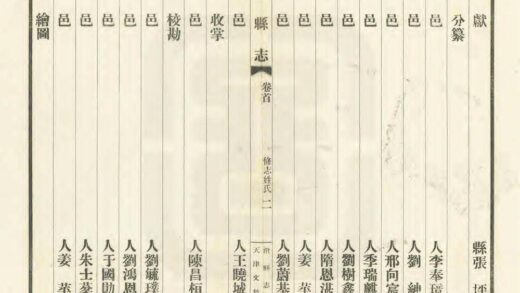 獻 縣張
分纂
邑 人李奉
邑 人劉 紳
邑 人邢向
邑 人季瑞
邑 人劉樹鑫
邑 人隋恩湛
邑 人姜
邑 人劉蔚
縣志 卷首 修志姓氏 二
縣志
天津文
邑 人王曉城
收掌
邑 人陳昌桓
校勘
邑 人劉毓璞
邑 人劉鴻恩
邑 人于國勛
邑 人朱士
邑 人姜
繪圖